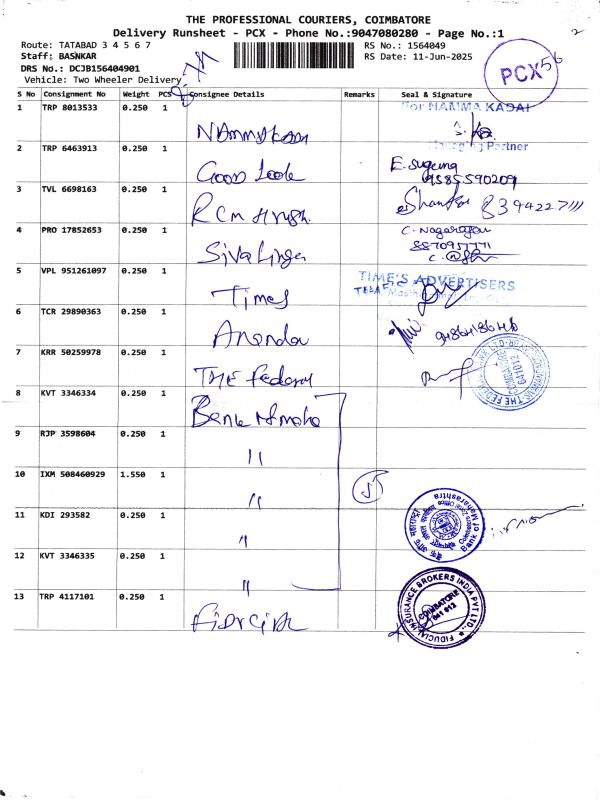 THE PROFESSIONAL COURIERS, COIMBATORE
Delivery Runsheet - PCX - Phone No.:9047080280 - Page No.:1
2
Route: TATABAD 3 4 5 6 7
RS No.: 1564049
Staff: BASNKAR
RS Date: 11-Jun-2025
DRS No.: DCJB156404901
Vehicle: Two Wheeler Delivery
PCX 56
S No Consignment No Weight PCS Consignee Details Remarks Seal & Signature
1 TRP 8013533 0.250 1
For NAMMA KADAI
Managing Partner
2 TRP 6463913 0.250 1 Good Look E. Sugeina
9585590209
3 TVL 6698163 0.250 1 RCM
4 PRO 17852653 0.250 1 Siva Linga C. Nagarajan
5 VPL 951261097 0.250 1 Times TIME'S ADVERTISERS
6 TCR 29890363 0.250 1 Ananda
7 KRR 50259978 0.250 1 THE Federal
641012
8 KVT 3346334 0.250 1 Bank
9 RJP 3598604 0.250 1 "
10 IXM 508460929 1.550 1 " 5
11 KDI 293582 0.250 1 "
Bank of Maharashtra
Coimbatore Zonal Office
12 KVT 3346335 0.250 1 "
13 TRP 4117101 0.250 1
FIDUCIAL INSURANCE BROKERS INDIA PVT LTD.
COIMBATORE
641 012